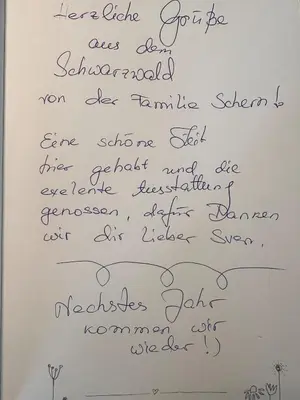 Herzliche Grüße
aus dem
Schwarzwald
von der Familie
Eine schöne Zeit
hier gehabt und die
exelente Ausstattung
genossen, dafür Danken
wir dir lieber Sven.
Nechstes Jahr
kommen wir
wieder !)